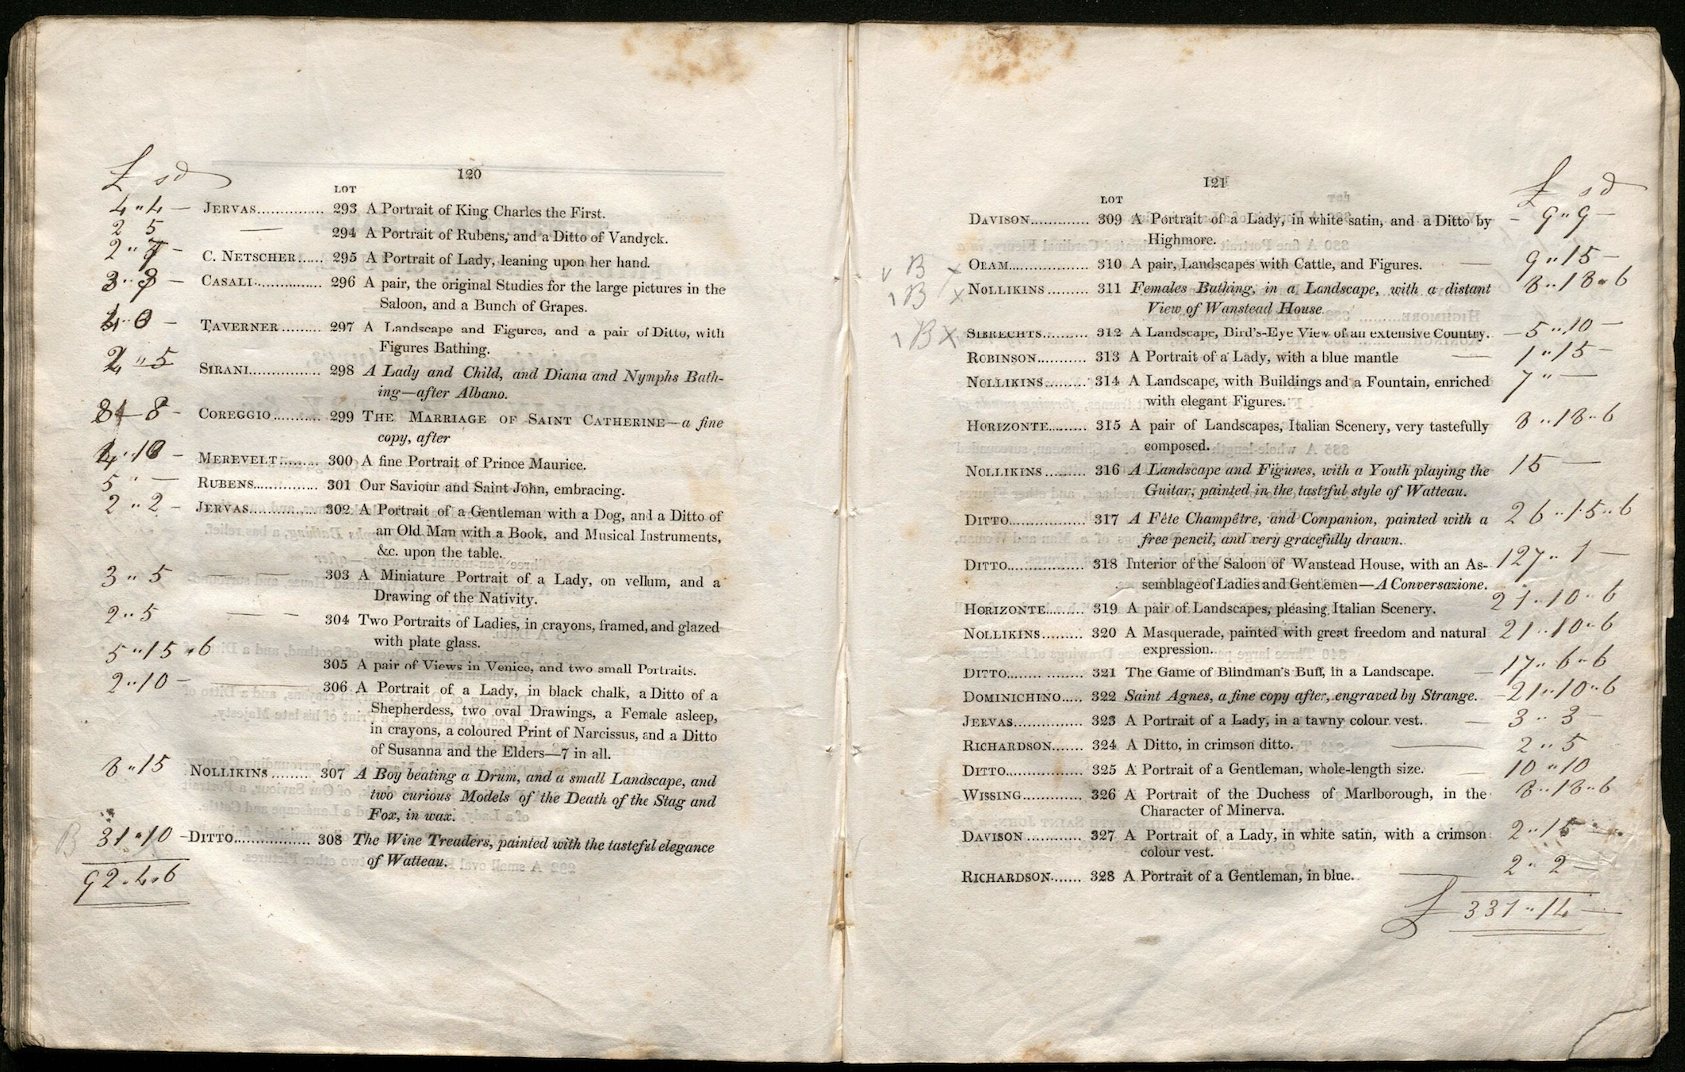 120
£ s d
LOT
4 " 4 – JERVAS............... 293 A Portrait of King Charles the First.
2 5 — 294 A Portrait of Rubens, and a Ditto of Vandyck.
C. NETSCHER...... 295 A Portrait of Lady, leaning upon her hand.
CASALI............... 296 A pair, the original Studies for the large pictures in the
Saloon, and a Bunch of Grapes.
TAVERNER......... 297 A Landscape and Figures, and a pair of Ditto, with
Figures Bathing.
2 " 5 SIRANI............... 298 A Lady and Child, and Diana and Nymphs Bath-
ing—after Albano.
COREGGIO.......... 299 THE MARRIAGE OF SAINT CATHERINE—a fine
copy, after
MEREVELT......... 300 A fine Portrait of Prince Maurice.
5 " — RUBENS.............. 301 Our Saviour and Saint John, embracing.
2 " 2 – JERVAS............... 302 A Portrait of a Gentleman with a Dog, and a Ditto of
an Old Man with a Book, and Musical Instruments,
&c. upon the table.
3 " 5 — 303 A Miniature Portrait of a Lady, on vellum, and a
Drawing of the Nativity.
2 " 5 — — 304 Two Portraits of Ladies, in crayons, framed, and glazed
with plate glass.
5 " 15 " 6 305 A pair of Views in Venice, and two small Portraits.
2 " 10 – — 306 A Portrait of a Lady, in black chalk, a Ditto of a
Shepherdess, two oval Drawings, a Female asleep,
in crayons, a coloured Print of Narcissus, and a Ditto
of Susanna and the Elders—7 in all.
8 " 15 NOLLIKINS ......... 307 A Boy beating a Drum, and a small Landscape, and
two curious Models of the Death of the Stag and
Fox, in wax.
B 31 " 10 – DITTO................ 308 The Wine Treaders, painted with the tasteful elegance
of Watteau.
92 " 4 " 6
121
£ s d
LOT
DAVISON............. 309 A Portrait of a Lady, in white satin, and a Ditto by – 9 " 9 –
Highmore.
v B x ORAM................. 310 A pair, Landscapes with Cattle, and Figures. — 9 " 15 –
B x NOLLIKINS ......... 311 Females Bathing, in a Landscape, with a distant 8 " 18 " 6
View of Wanstead House
B x SIBRECHTS.......... 312 A Landscape, Bird's-Eye View of an extensive Country. – 5 " 10 –
ROBINSON........... 313 A Portrait of a Lady, with a blue mantle — 1 " 15 –
NOLLIKINS.......... 314 A Landscape, with Buildings and a Fountain, enriched 7 " —
with elegant Figures.
HORIZONTE......... 315 A pair of Landscapes, Italian Scenery, very tastefully 8 " 18 " 6
composed.
NOLLIKINS ......... 316 A Landscape and Figures, with a Youth playing the 15 —
Guitar, painted in the tasteful style of Watteau.
DITTO................. 317 A Fête Champêtre, and Companion, painted with a 26 " 15 " 6
free pencil, and very gracefully drawn.
DITTO................. 318 Interior of the Saloon of Wanstead House, with an As- 127 " 1 –
semblage of Ladies and Gentlemen—A Conversazione.
HORIZONTE......... 319 A pair of Landscapes, pleasing Italian Scenery. 21 " 10 " 6
NOLLIKINS......... 320 A Masquerade, painted with great freedom and natural 21 " 10 " 6
expression.
DITTO................. 321 The Game of Blindman's Buff, in a Landscape. – 17 " 6 " 6
DOMINICHINO..... 322 Saint Agnes, a fine copy after, engraved by Strange. – 21 " 10 " 6
JERVAS............... 323 A Portrait of a Lady, in a tawny colour vest. — 3 " 3 –
RICHARDSON....... 324 A Ditto, in crimson ditto. — 2 " 5
DITTO................. 325 A Portrait of a Gentleman, whole-length size. — 10 " 10
WISSING............. 326 A Portrait of the Duchess of Marlborough, in the 8 " 18 " 6
Character of Minerva.
DAVISON ............ 327 A Portrait of a Lady, in white satin, with a crimson 2 " 15
colour vest.
RICHARDSON....... 328 A Portrait of a Gentleman, in blue. — 2 " 2 –
£ 331 " 14 –